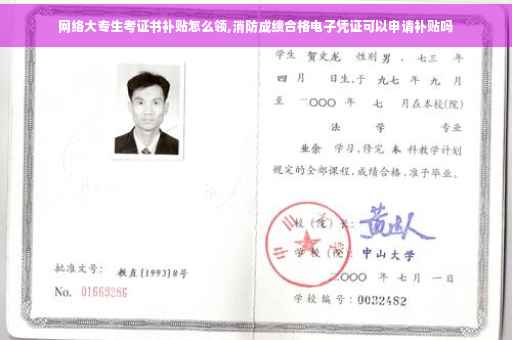 网络大专生考证书补贴怎么领,消防成绩合格电子凭证可以申请补贴吗
学生 贺文龙 性别 男 . 七三 年
四 月 日生,于 九七 年 九 月
至 二〇〇〇 年 七 月在本校(院)
法 学 专业
业余 学习,修完 本 科教学计划
规定的全部课程,成绩合格,准予毕业。
校(院)长:
学校(院): 中山大学
二〇〇〇 年 七 月 一 日
批准文号: 教直[1993]8号
No. 01669286
学校编号: 0032482